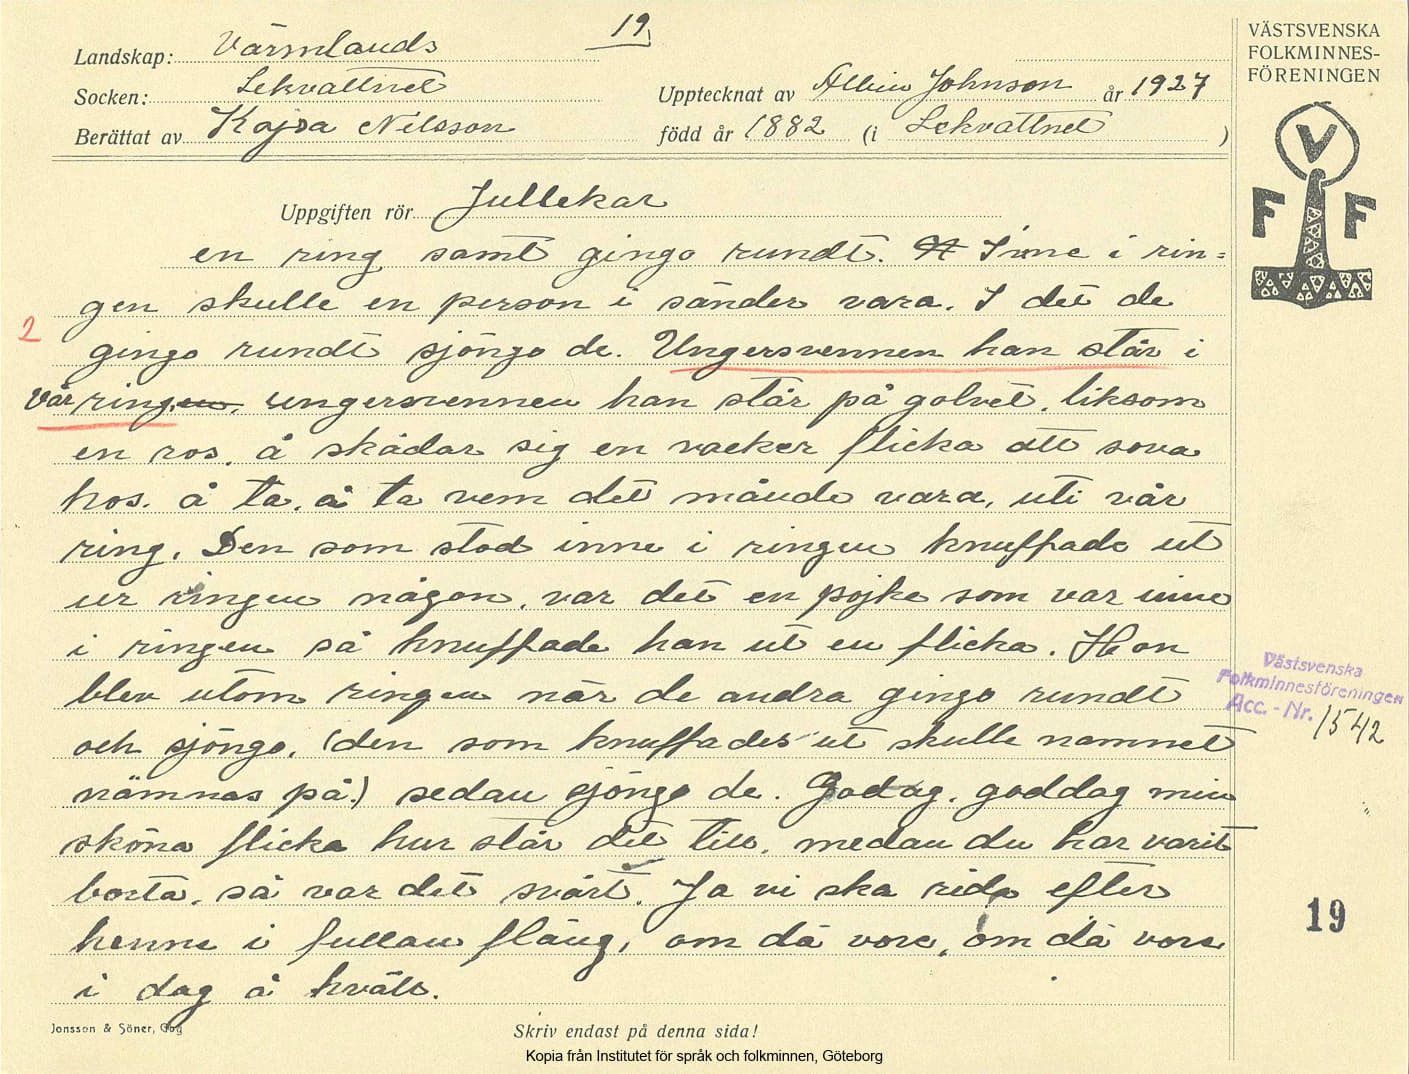 19
Landskap: Värmlands
Socken: Lekvattnet
Berättat av Kajsa Nilsson
Upptecknat av Albin Johnson år 1927
född år 1882 (i Lekvattnet )
Uppgiften rör Jullekar
en ring samt gingo rundt. Inne i rin=
gen skulle en person i sänder vara. I det de
2
gingo rundt sjöngo de. Ungersvennen han står i
vår ringen, ungersvennen han står på golvet, liksom
en ros, å skådar sig en vacker flicka att sova
hos. å ta, å ta vem det månde vara, uti vår
ring. Den som stod inne i ringen knuffade ut
ur ringen någon, var det en pojke som var inne
i ringen så knuffade han ut en flicka. Hon
blev utom ringen när de andra gingo rundt
och sjöngo, (den som knuffades ut skulle namnet
nämnas på.) sedan sjöngo de. Godag, goddag min
sköna flicka hur står det till, medan du har varit
borta, så var det svårt. Ja vi ska rida efter
henne i fullan fläng, om då vore, om då vore
i dag å kväll.
Jonsson & Söner, Gbg
Skriv endast på denna sida!
Kopia från Institutet för språk och folkminnen, Göteborg
VÄSTSVENSKA
FOLKMINNES-
FÖRENINGEN
V
F F
Västsvenska
Folkminnesföreningen
Acc.-Nr. 1542
19